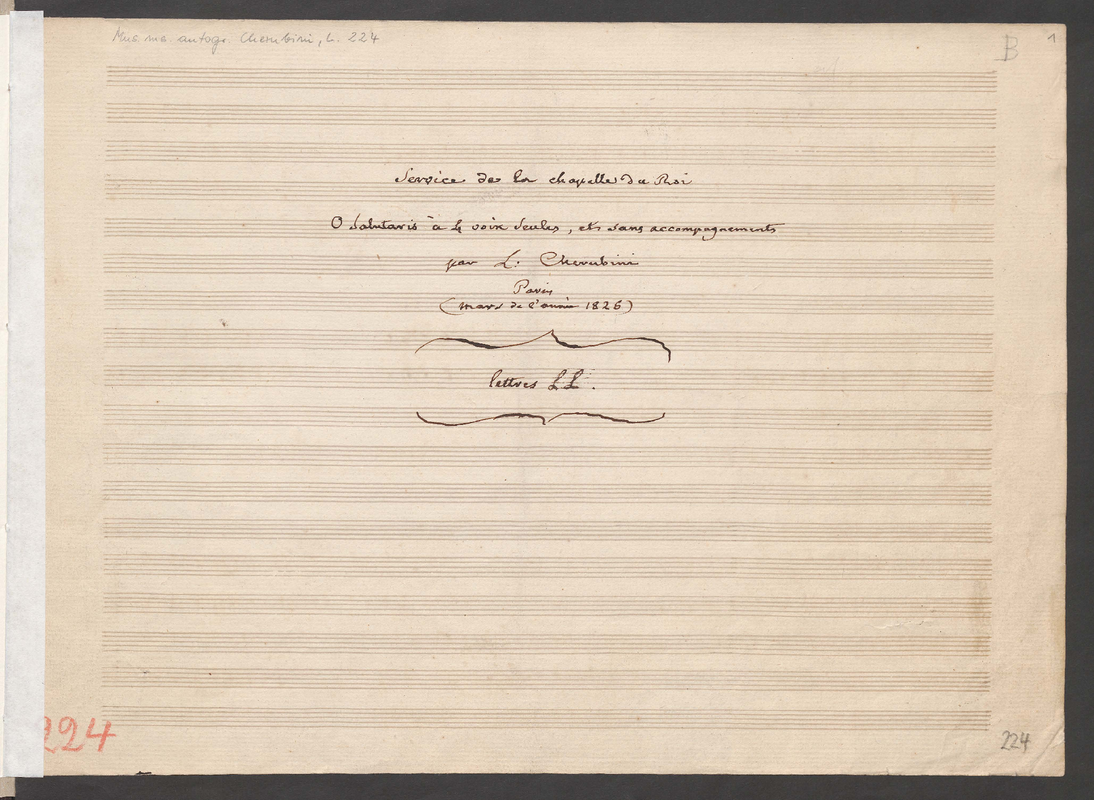 Mus. ms. autogr. Cherubini, L. 224
B
1
Service de la chapelle du Roi
O Salutaris à 4 voix seules, et sans accompagnements
par L. Cherubini
Paris
(mars de l'année 1826)
lettres LL.
224
224